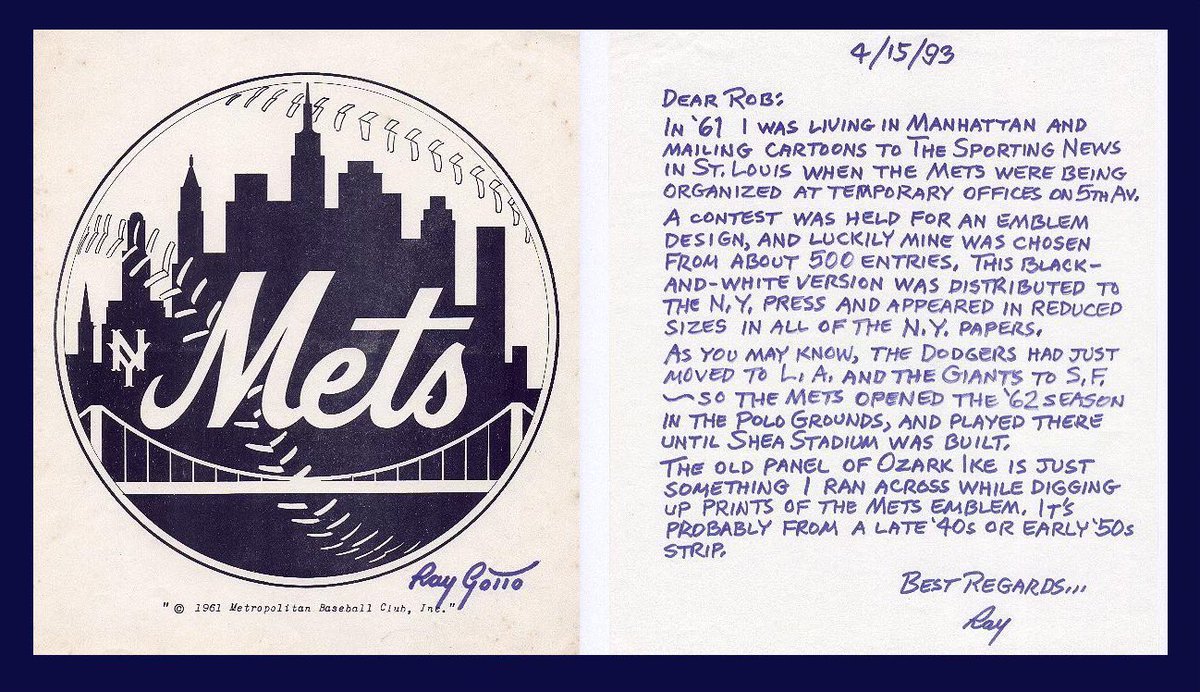 NY
Mets
Ray Gotto
"© 1961 Metropolitan Baseball Club, Inc."
4/15/93
DEAR ROB:
IN '61 I WAS LIVING IN MANHATTAN AND
MAILING CARTOONS TO THE SPORTING NEWS
IN ST. LOUIS WHEN THE METS WERE BEING
ORGANIZED AT TEMPORARY OFFICES ON 5TH AV.
A CONTEST WAS HELD FOR AN EMBLEM
DESIGN, AND LUCKILY MINE WAS CHOSEN
FROM ABOUT 500 ENTRIES. THIS BLACK-
AND-WHITE VERSION WAS DISTRIBUTED TO
THE N.Y. PRESS AND APPEARED IN REDUCED
SIZES IN ALL OF THE N.Y. PAPERS.
AS YOU MAY KNOW, THE DODGERS HAD JUST
MOVED TO L.A. AND THE GIANTS TO S.F.
— SO THE METS OPENED THE '62 SEASON
IN THE POLO GROUNDS, AND PLAYED THERE
UNTIL SHEA STADIUM WAS BUILT.
THE OLD PANEL OF OZARK IKE IS JUST
SOMETHING I RAN ACROSS WHILE DIGGING
UP PRINTS OF THE METS EMBLEM. IT'S
PROBABLY FROM A LATE '40s OR EARLY '50s
STRIP.
BEST REGARDS...
Ray